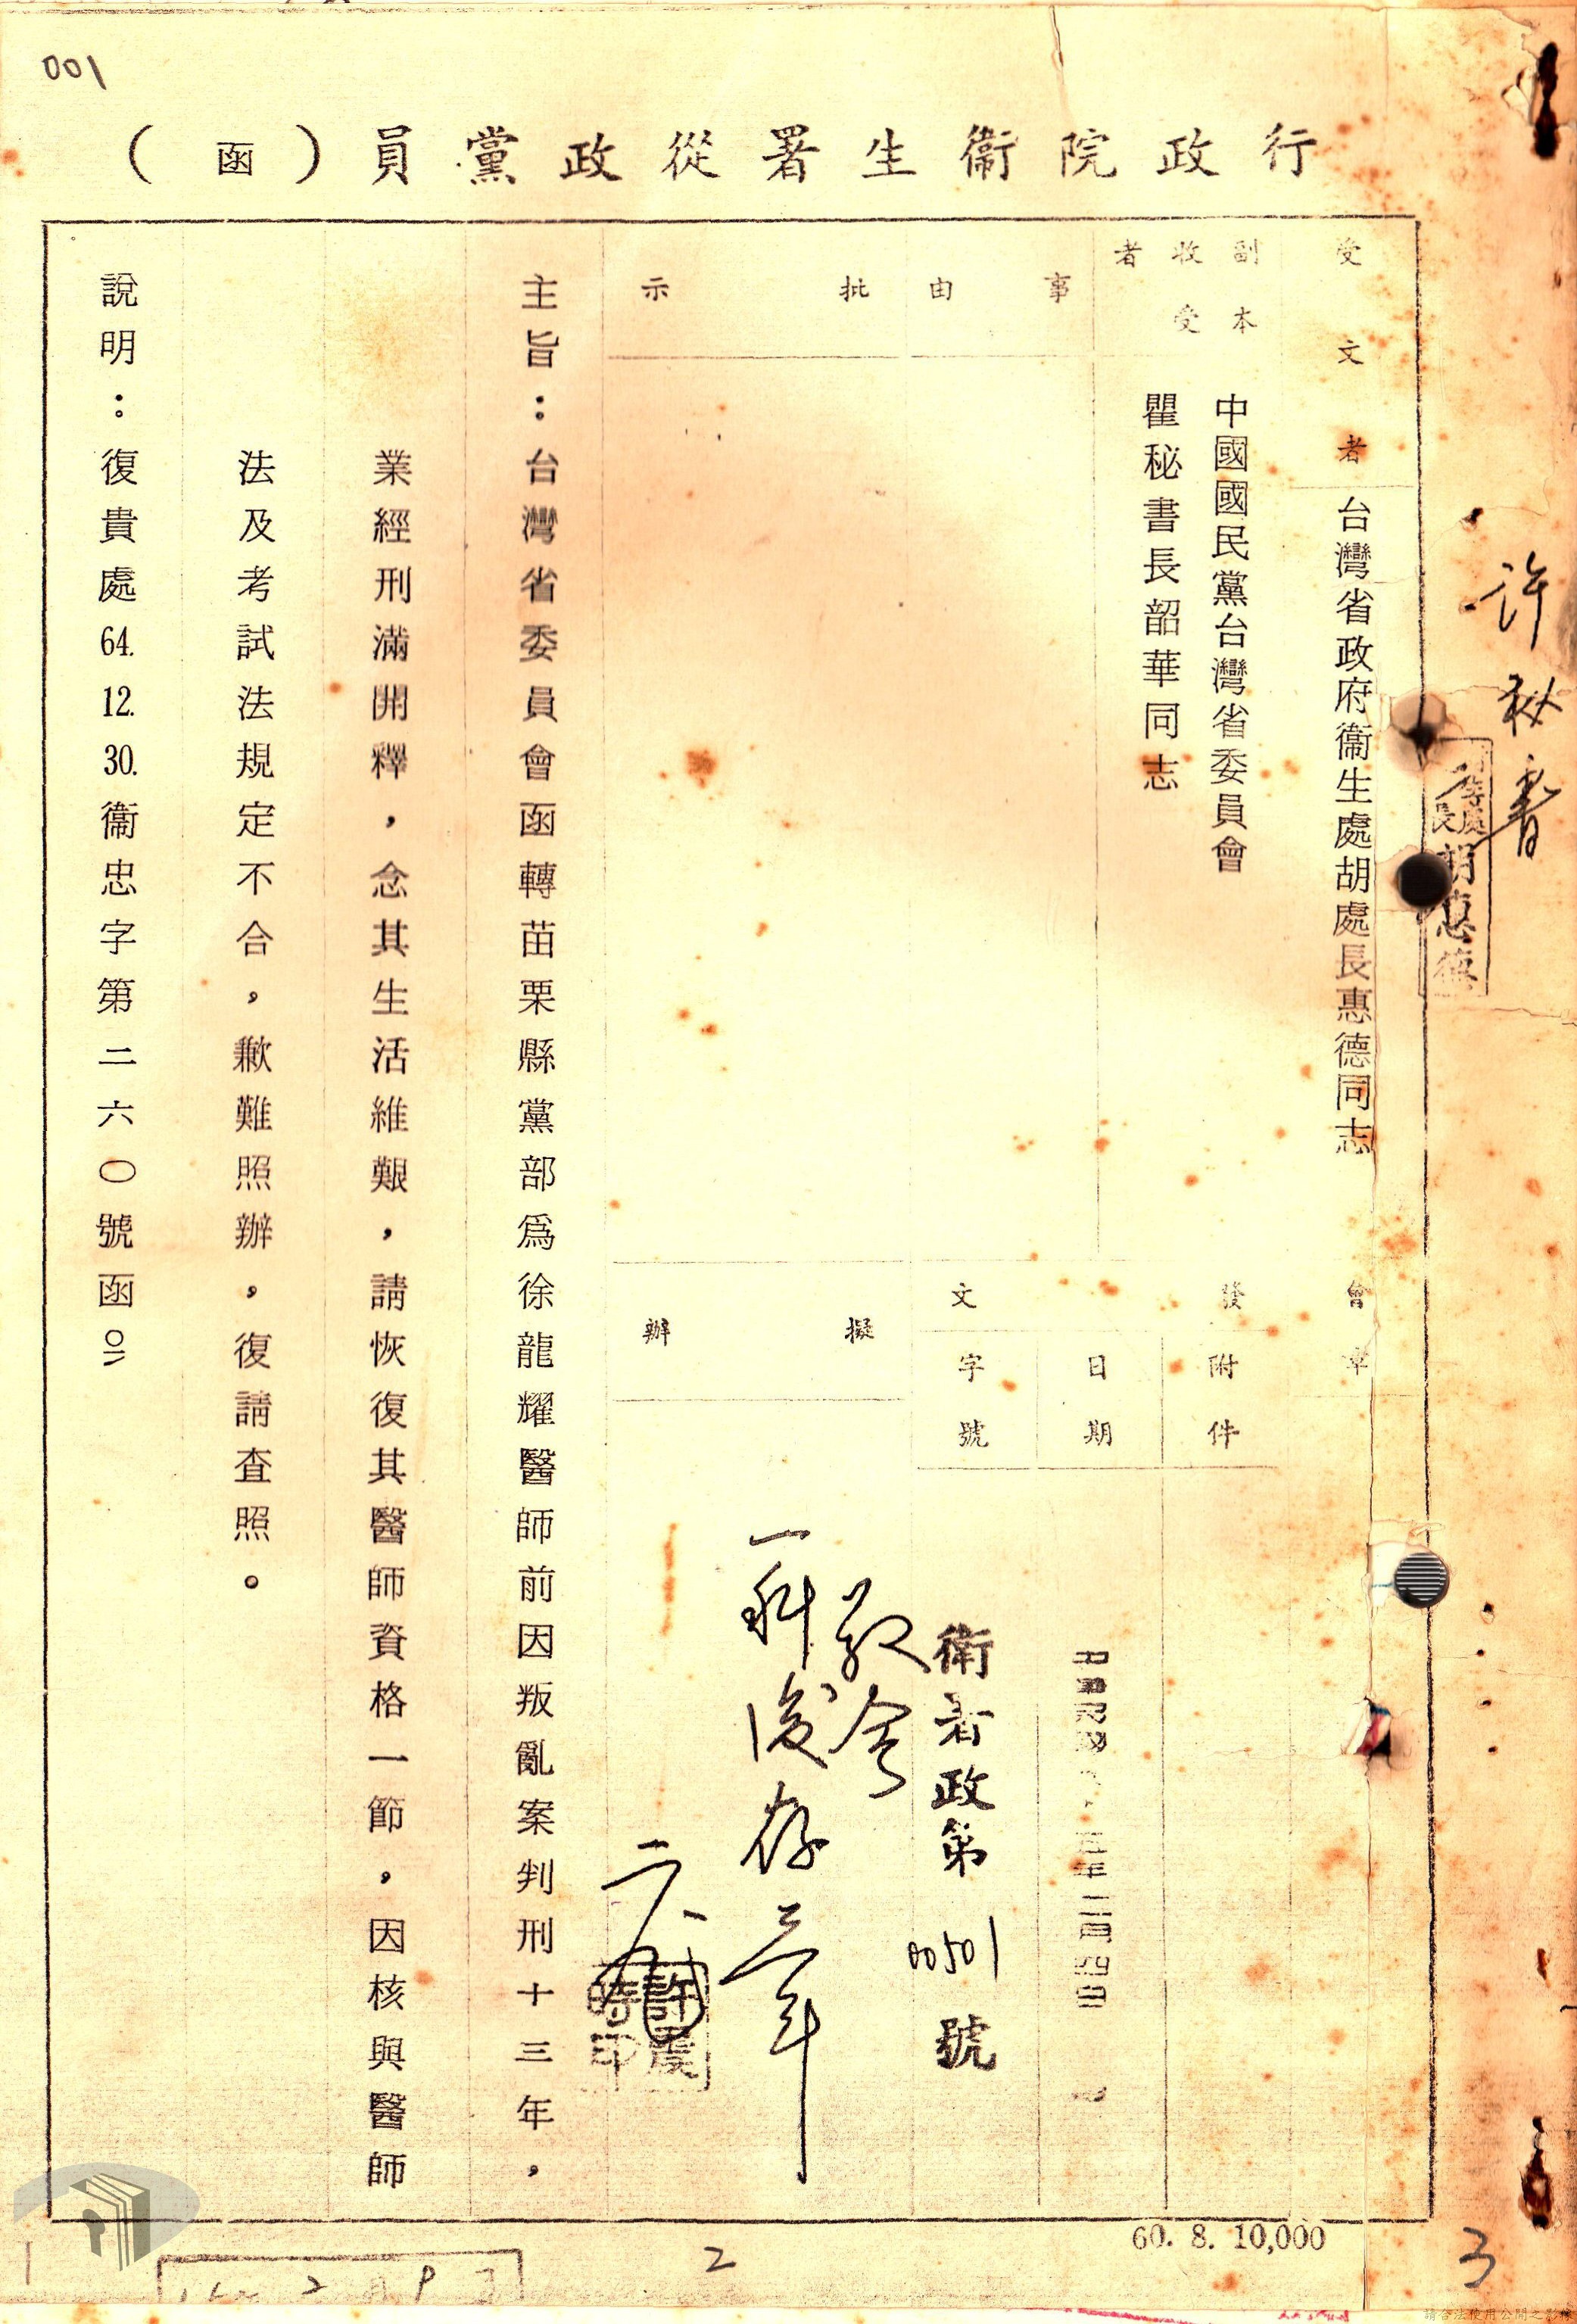 001
行政院衞生署從政黨員(函)
受文者
台灣省政府衞生處胡處長惠德同志
副本收受者
中國國民黨台灣省委員會
瞿秘書長韶華同志
事由
批示
會章
發文
附件
日期
字號
衛署政第00501號
擬辦
敬會
一科後存
主旨：台灣省委員會函轉苗栗縣黨部爲徐龍耀醫師前因叛亂案判刑十三年，
業經刑滿開釋，念其生活維艱，請恢復其醫師資格一節，因核與醫師
法及考試法規定不合，歉難照辦，復請查照。
說明：復貴處64.12.30.衞忠字第二六〇號函
許秘書
處長胡惠德
60. 8. 10,000
2
3